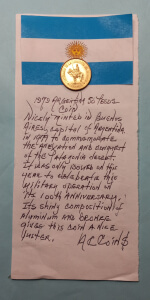 1979 ARGENTINA 50 PESOS
COIN
NICELY MINTED IN BUENOS
AIRES, CAPITAL OF ARGENTINA,
IN 1979 TO COMMEMORATE
THE INVASION AND CONQUEST
OF THE PATAGONIA DESERT.
IT WAS ONLY ISSUED ON THIS
YEAR TO CELEBRATE THIS
MILITARY OPERATION ON
ITS 100TH ANNIVERSARY.
ITS SHINY COMPOSITION OF
ALUMINUM AND BRONZE
GIVES THIS COIN A NICE
LUSTER.
A.C. COIN$